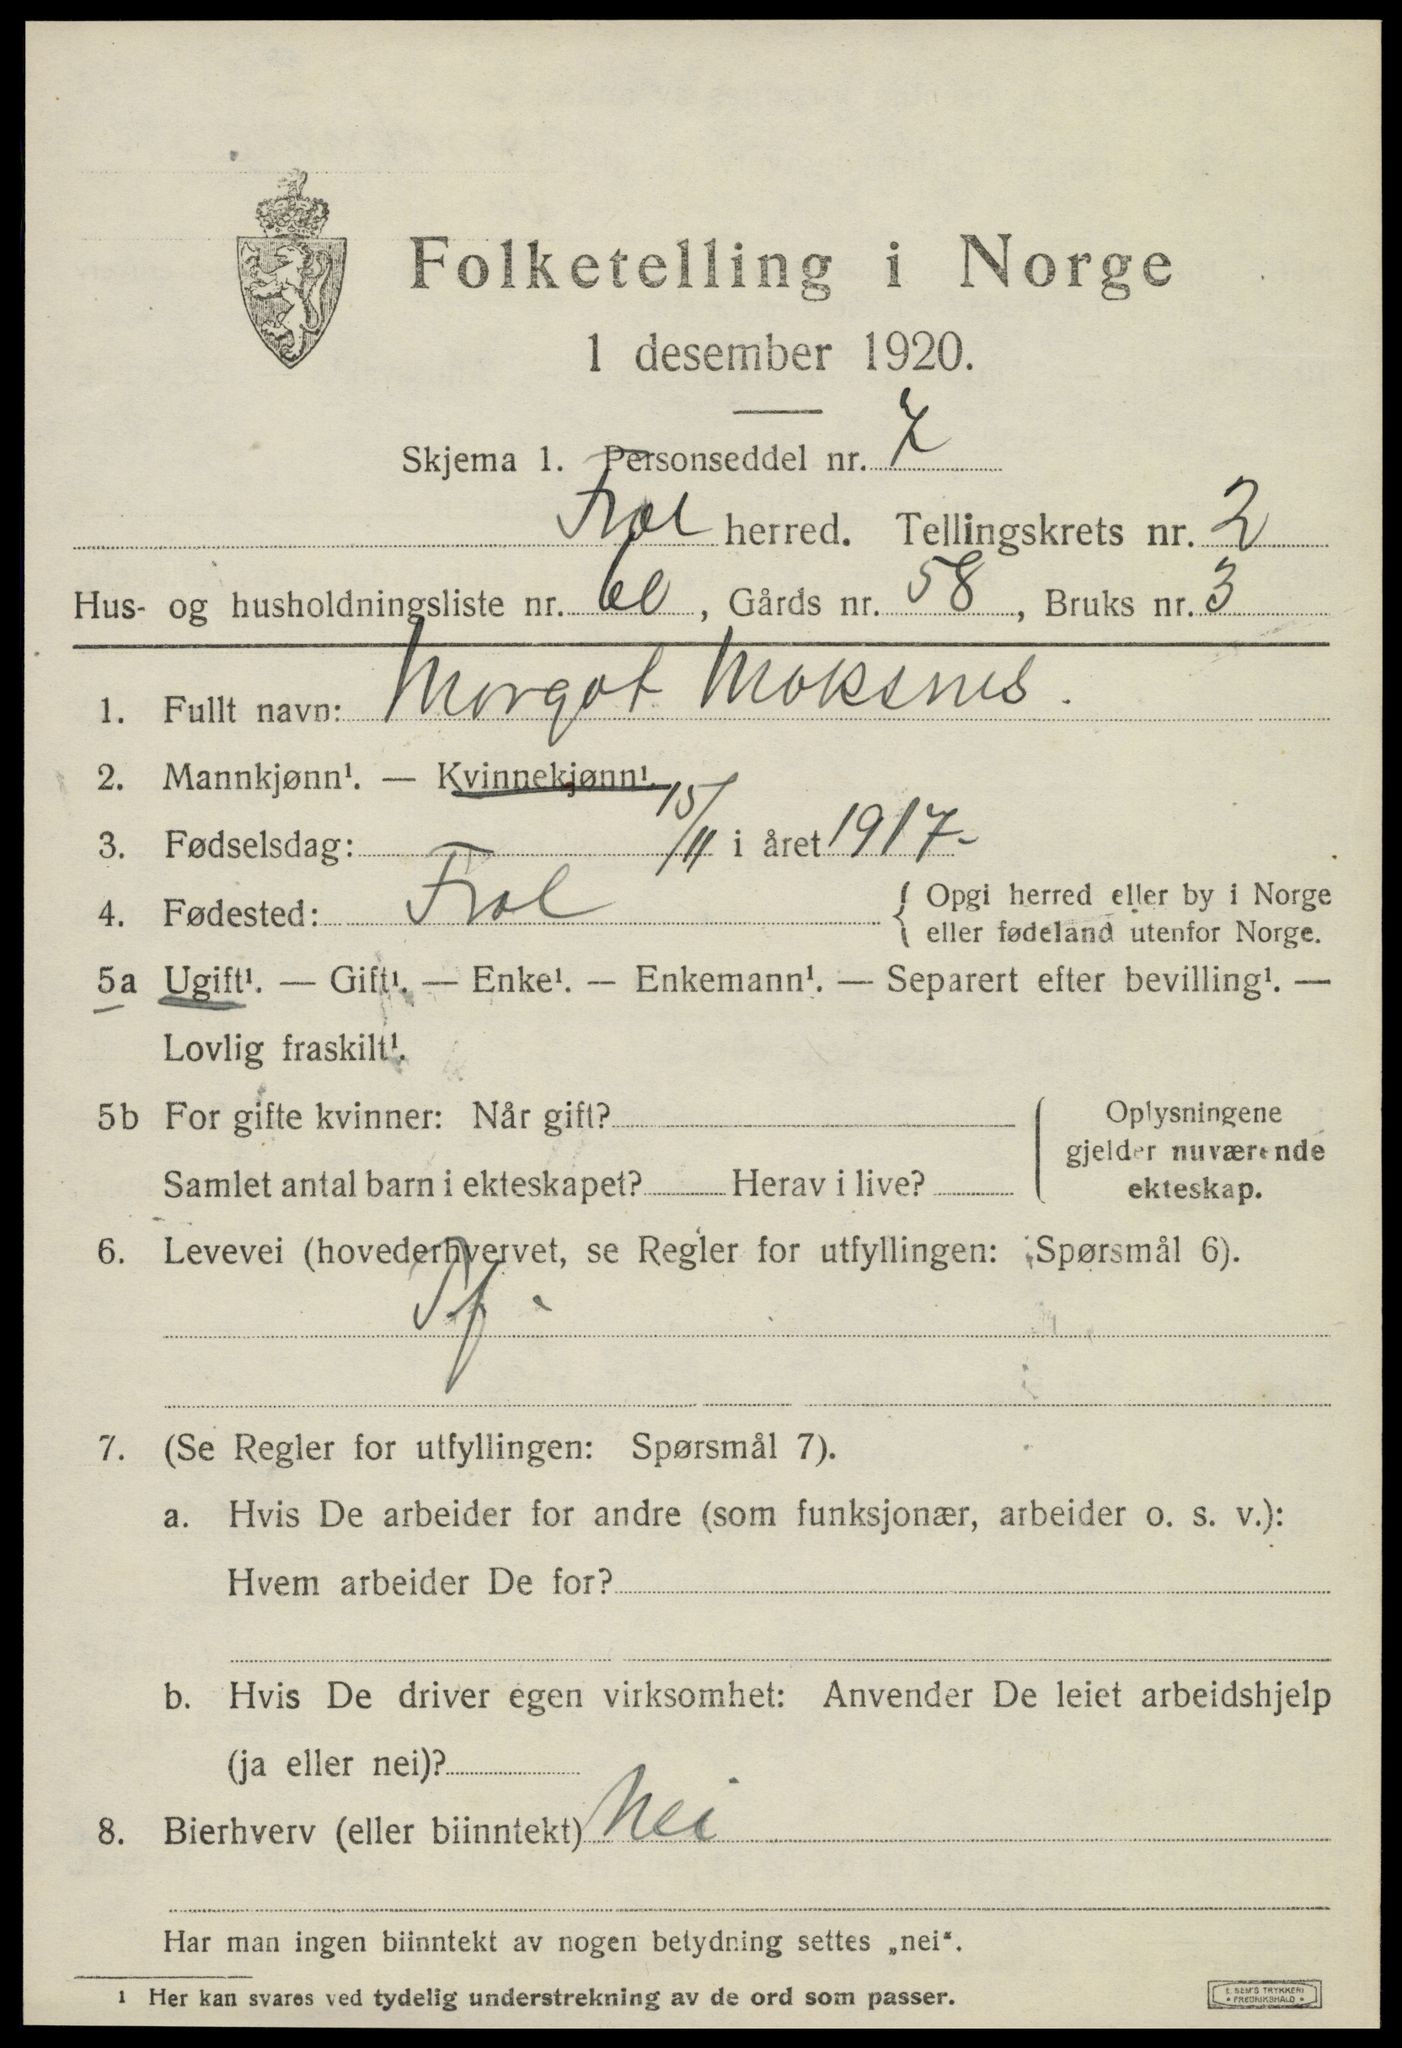 Folketelling i Norge
1 desember 1920.
Skjema 1. Personseddel nr. 7
Frol herred. Tellingskrets nr. 2
Hus- og husholdningsliste nr. 60, Gårds nr. 58, Bruks nr. 3
1. Fullt navn: Margot Moksnes.
2. Mannkjønn¹. — Kvinnekjønn¹.
3. Fødselsdag: 15/11 i året 1917-
4. Fødested: Frol { Opgi herred eller by i Norge
eller fødeland utenfor Norge.
5a Ugift¹. — Gift¹. — Enke¹. — Enkemann¹. — Separert efter bevilling¹. —
Lovlig fraskilt¹.
5b For gifte kvinner: Når gift? { Oplysningene
gjelder nuværende
Samlet antal barn i ekteskapet? Herav i live? ekteskap.
6. Levevei (hovederhvervet, se Regler for utfyllingen: Spørsmål 6).
7. (Se Regler for utfyllingen: Spørsmål 7).
a. Hvis De arbeider for andre (som funksjonær, arbeider o. s. v.):
Hvem arbeider De for?
b. Hvis De driver egen virksomhet: Anvender De leiet arbeidshjelp
(ja eller nei)?
8. Bierhverv (eller biinntekt) Nei
Har man ingen biinntekt av nogen betydning settes „nei".
1 Her kan svares ved tydelig understrekning av de ord som passer.
E. SEM'S TRYKKERI
• FREDRIKSHALD •